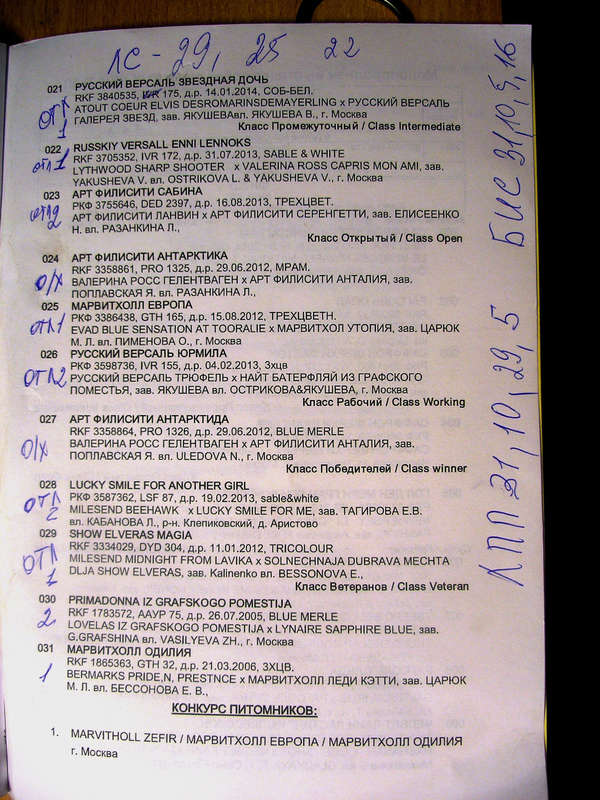 ЛС - 29, 25 22
021 РУССКИЙ ВЕРСАЛЬ ЗВЕЗДНАЯ ДОЧЬ
RKF 3840535, IVR 175, д.р. 14.01.2014, СОБ-БЕЛ.
ATOUT COEUR ELVIS DESROMARINSDEMAYERLING x РУССКИЙ ВЕРСАЛЬ
ОТЛ 1
ГАЛЕРЕЯ ЗВЕЗД, зав. ЯКУШЕВАвл. ЯКУШЕВА В., г. Москва
Класс Промежуточный / Class Intermediate
022 RUSSKIY VERSALL ENNI LENNOKS
ОТЛ 1
RKF 3705352, IVR 172, д.р. 31.07.2013, SABLE & WHITE
LYTHWOOD SHARP SHOOTER x VALERINA ROSS CAPRIS MON AMI, зав.
YAKUSHEVA V. вл. OSTRIKOVA L. & YAKUSHEVA V., г. Москва
023 АРТ ФИЛИСИТИ САБИНА
ОТЛ 2
РКФ 3755646, DED 2397, д.р. 16.08.2013, ТРЕХЦВЕТ.
АРТ ФИЛИСИТИ ЛАНВИН x АРТ ФИЛИСИТИ СЕРЕНГЕТТИ, зав. ЕЛИСЕЕНКО
Н. вл. РАЗАНКИНА Л.,
Класс Открытый / Class Open
024 АРТ ФИЛИСИТИ АНТАРКТИКА
RKF 3358861, PRO 1325, д.р. 29.06.2012, МРАМ.
О/Х
ВАЛЕРИНА РОСС ГЕЛЕНТВАГЕН x АРТ ФИЛИСИТИ АНТАЛИЯ, зав.
ПОПЛАВСКАЯ Я. вл. РАЗАНКИНА Л.,
025 МАРВИТХОЛЛ ЕВРОПА
ОТЛ 1
РКФ 3386438, GTH 165, д.р. 15.08.2012, ТРЕХЦВЕТН.
EVAD BLUE SENSATION AT TOORALIE x МАРВИТХОЛ УТОПИЯ, зав. ЦАРЮК
М. Л. вл. ПИМЕНОВА О., г. Москва
026 РУССКИЙ ВЕРСАЛЬ ЮРМИЛА
РКФ 3598736, IVR 155, д.р. 04.02.2013, 3хцв
ОТЛ 2
РУССКИЙ ВЕРСАЛЬ ТРЮФЕЛЬ x НАЙТ БАТЕРФЛЯЙ ИЗ ГРАФСКОГО
ПОМЕСТЬЯ, зав. ЯКУШЕВА вл. ОСТРИКОВА&ЯКУШЕВА, г. Москва
Класс Рабочий / Class Working
027 АРТ ФИЛИСИТИ АНТАРКТИДА
RKF 3358864, PRO 1326, д.р. 29.06.2012, BLUE MERLE
О/Х
ВАЛЕРИНА РОСС ГЕЛЕНТВАГЕН x АРТ ФИЛИСИТИ АНТАЛИЯ, зав.
ПОПЛАВСКАЯ Я. вл. ULEDOVA N., г. Москва
Класс Победителей / Class winner
028 LUCKY SMILE FOR ANOTHER GIRL
РКФ 3587362, LSF 87, д.р. 19.02.2013, sable&white
ОТЛ 2
MILESEND BEEHAWK x LUCKY SMILE FOR ME, зав. ТАГИРОВА Е.В.
вл. КАБАНОВА Л., р-н. Клепиковский, д. Аристово
029 SHOW ELVERAS MAGIA
RKF 3334029, DYD 304, д.р. 11.01.2012, TRICOLOUR
ОТЛ 1
MILESEND MIDNIGHT FROM LAVIKA x SOLNECHNAJA DUBRAVA MECHTA
DLJA SHOW ELVERAS, зав. Kalinenko вл. BESSONOVA E.,
Класс Ветеранов / Class Veteran
030 PRIMADONNA IZ GRAFSKOGO POMESTIJA
RKF 1783572, ААУР 75, д.р. 26.07.2005, BLUE MERLE
2
LOVELAS IZ GRAFSKOGO POMESTIJA x LYNAIRE SAPPHIRE BLUE, зав.
G.GRAFSHINA вл. VASILYEVA ZH., г. Москва
031 МАРВИТХОЛЛ ОДИЛИЯ
RKF 1865363, GTH 32, д.р. 21.03.2006, 3ХЦВ.
1
BERMARKS PRIDE,N, PRESTNCE x МАРВИТХОЛЛ ЛЕДИ КЭТТИ, зав. ЦАРЮК
М. Л. вл. БЕССОНОВА Е. В.,
КОНКУРС ПИТОМНИКОВ:
1. MARVITHOLL ZEFIR / МАРВИТХОЛЛ ЕВРОПА / МАРВИТХОЛЛ ОДИЛИЯ
г. Москва
ЛПП 31, 10, 29, 5 БИС 31, 10, 5, 16